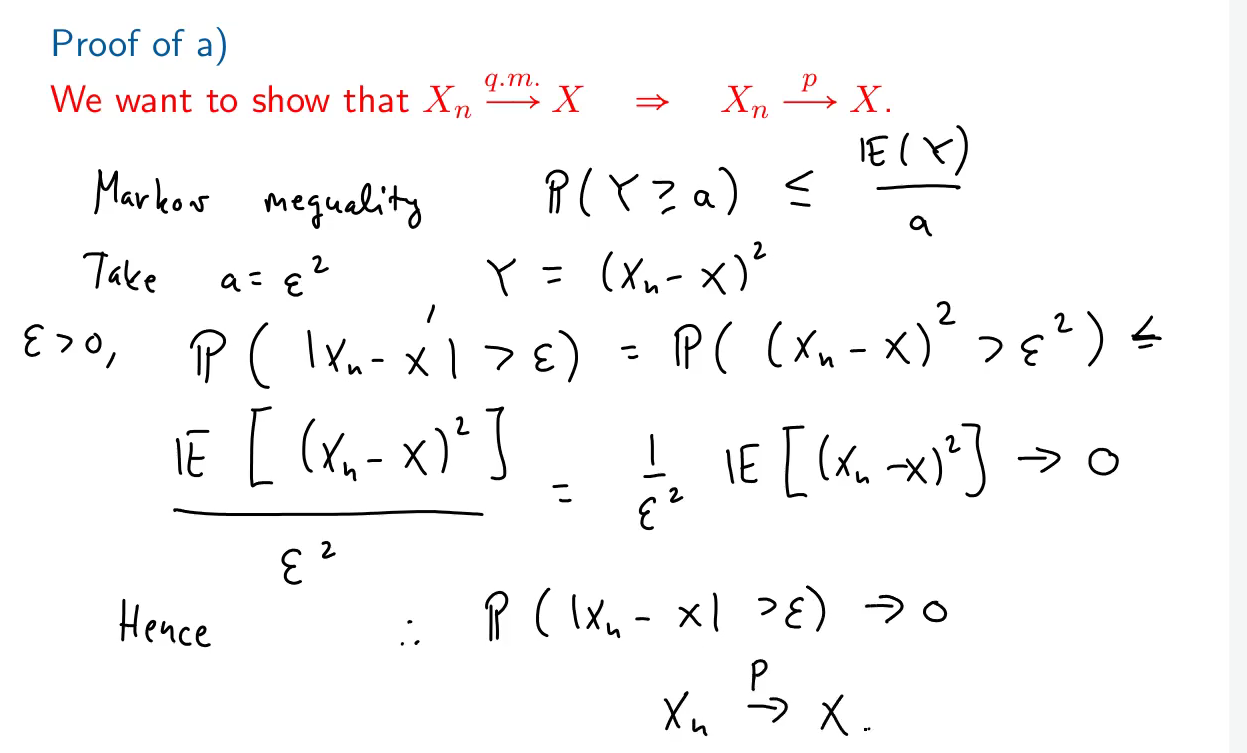 Proof of a)
We want to show that Xₙ —q.m.→ X ⇒ Xₙ —p→ X.
Markov inequality ℙ(Y ≥ a) ≤ 𝔼(Y) / a
Take a = ε² Y = (Xₙ - X)²
ε > 0, ℙ( |Xₙ - X| > ε) = ℙ( (Xₙ - X)² > ε² ) ≤
𝔼 [ (Xₙ - X)² ] / ε² = 1/ε² 𝔼 [(Xₙ - X)²] → 0
Hence ∴ ℙ ( |Xₙ - X| > ε) → 0
Xₙ —P→ X.